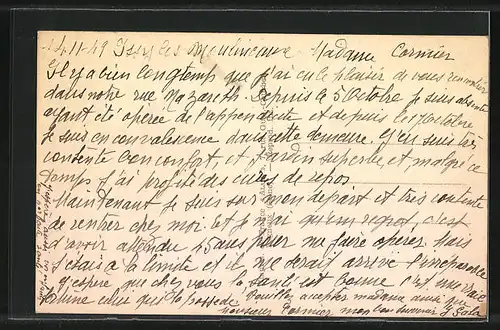 14-11-49 Issy les Moulineaux. Madame Cormier
Il y a bien longtemp que j'ai eu le plaisir de vous rencontrer
dans notre rue Nazareth. Depuis le 5 Octobre je suis absente
ayant été opérée de l'appendicite et depuis le 17 octobre
je suis en convalescence dans cette demeure. J'en suis très
contente bon confort, et jardin superbe, et malgré ce
temps j'ai profité des cures de repos
Maintenant je suis sur mon départ et très contente
de rentrer chez moi. Et je n'ai qu'un regret, c'est
d'avoir attendu 4 ans pour me faire opérer. Mais
j'étais à la limite et il me serait arrivé l'inréparable
J'espère que chez vous la santé est bonne c'est une vraie
fortune celui qui la possède. Veuillez accepter madame ainsi que
monsieur Cormier mon bon souvenir